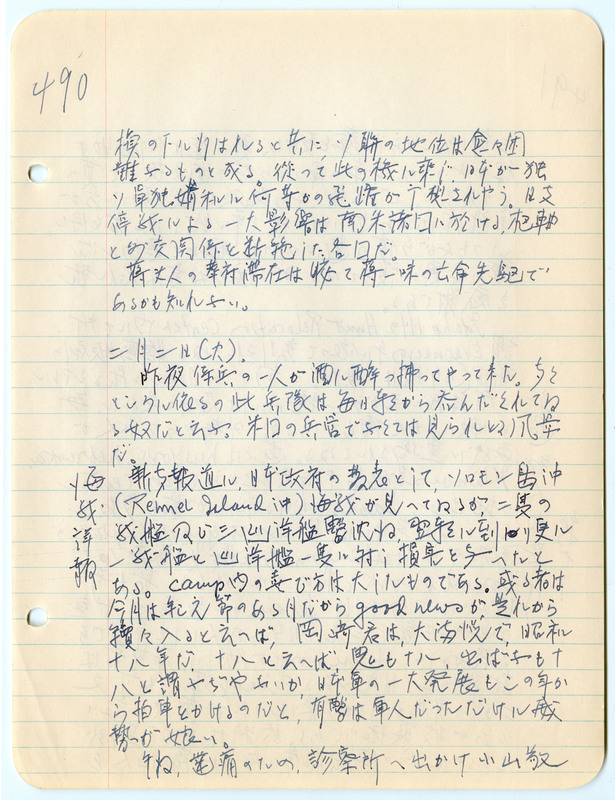 490
損の下にうはれると共に、ソ聯の地位は愈々困
難なるものと成る。従って此の機に乗じ日本が独
ソ単独媾和に何等かの進路が予想されやう。日支
停戦による一大影響は南米諸国に於ける、枢軸
と外交関係を断絶した各国だ。
蒋夫人の華府滞在は験て蒋一味の亡命先駆で
あるかも知れない。
二月二日(火)。
昨夜係兵の一人が酒に酔っ拂ってやって来た。
此兵隊は毎日朝から呑んだくれてゐ
る奴だと云ふ。米国の兵営でなくては見られない風景
だ。
海戦詳報
新聞報道に、日本政府の発表として、ソロモン島沖
(Rennel Island 沖) 海戦が見へてゐるが、二隻の
戦艦及び三巡洋艦撃沈ね、翌朝に到り更に
一戦艦と巡洋艦一隻に対し損害を与へたと
ある。camp内の喜び方は大したものである。或る者は
今月は紀元節のある月だから good news が、是れから
続々入ると云へば、岡崎君は、大満悦で、昭和
十八年だ、十八と云へば、鬼も十八、出ばなも十
八と謂ふぢやないか、日本軍の一大発展もこの年か
ら拍車をかけるのだと、有繋は軍人だっただけに威
勢が好い。
午ね、歯痛のため、診察所へ出かけ小山敬